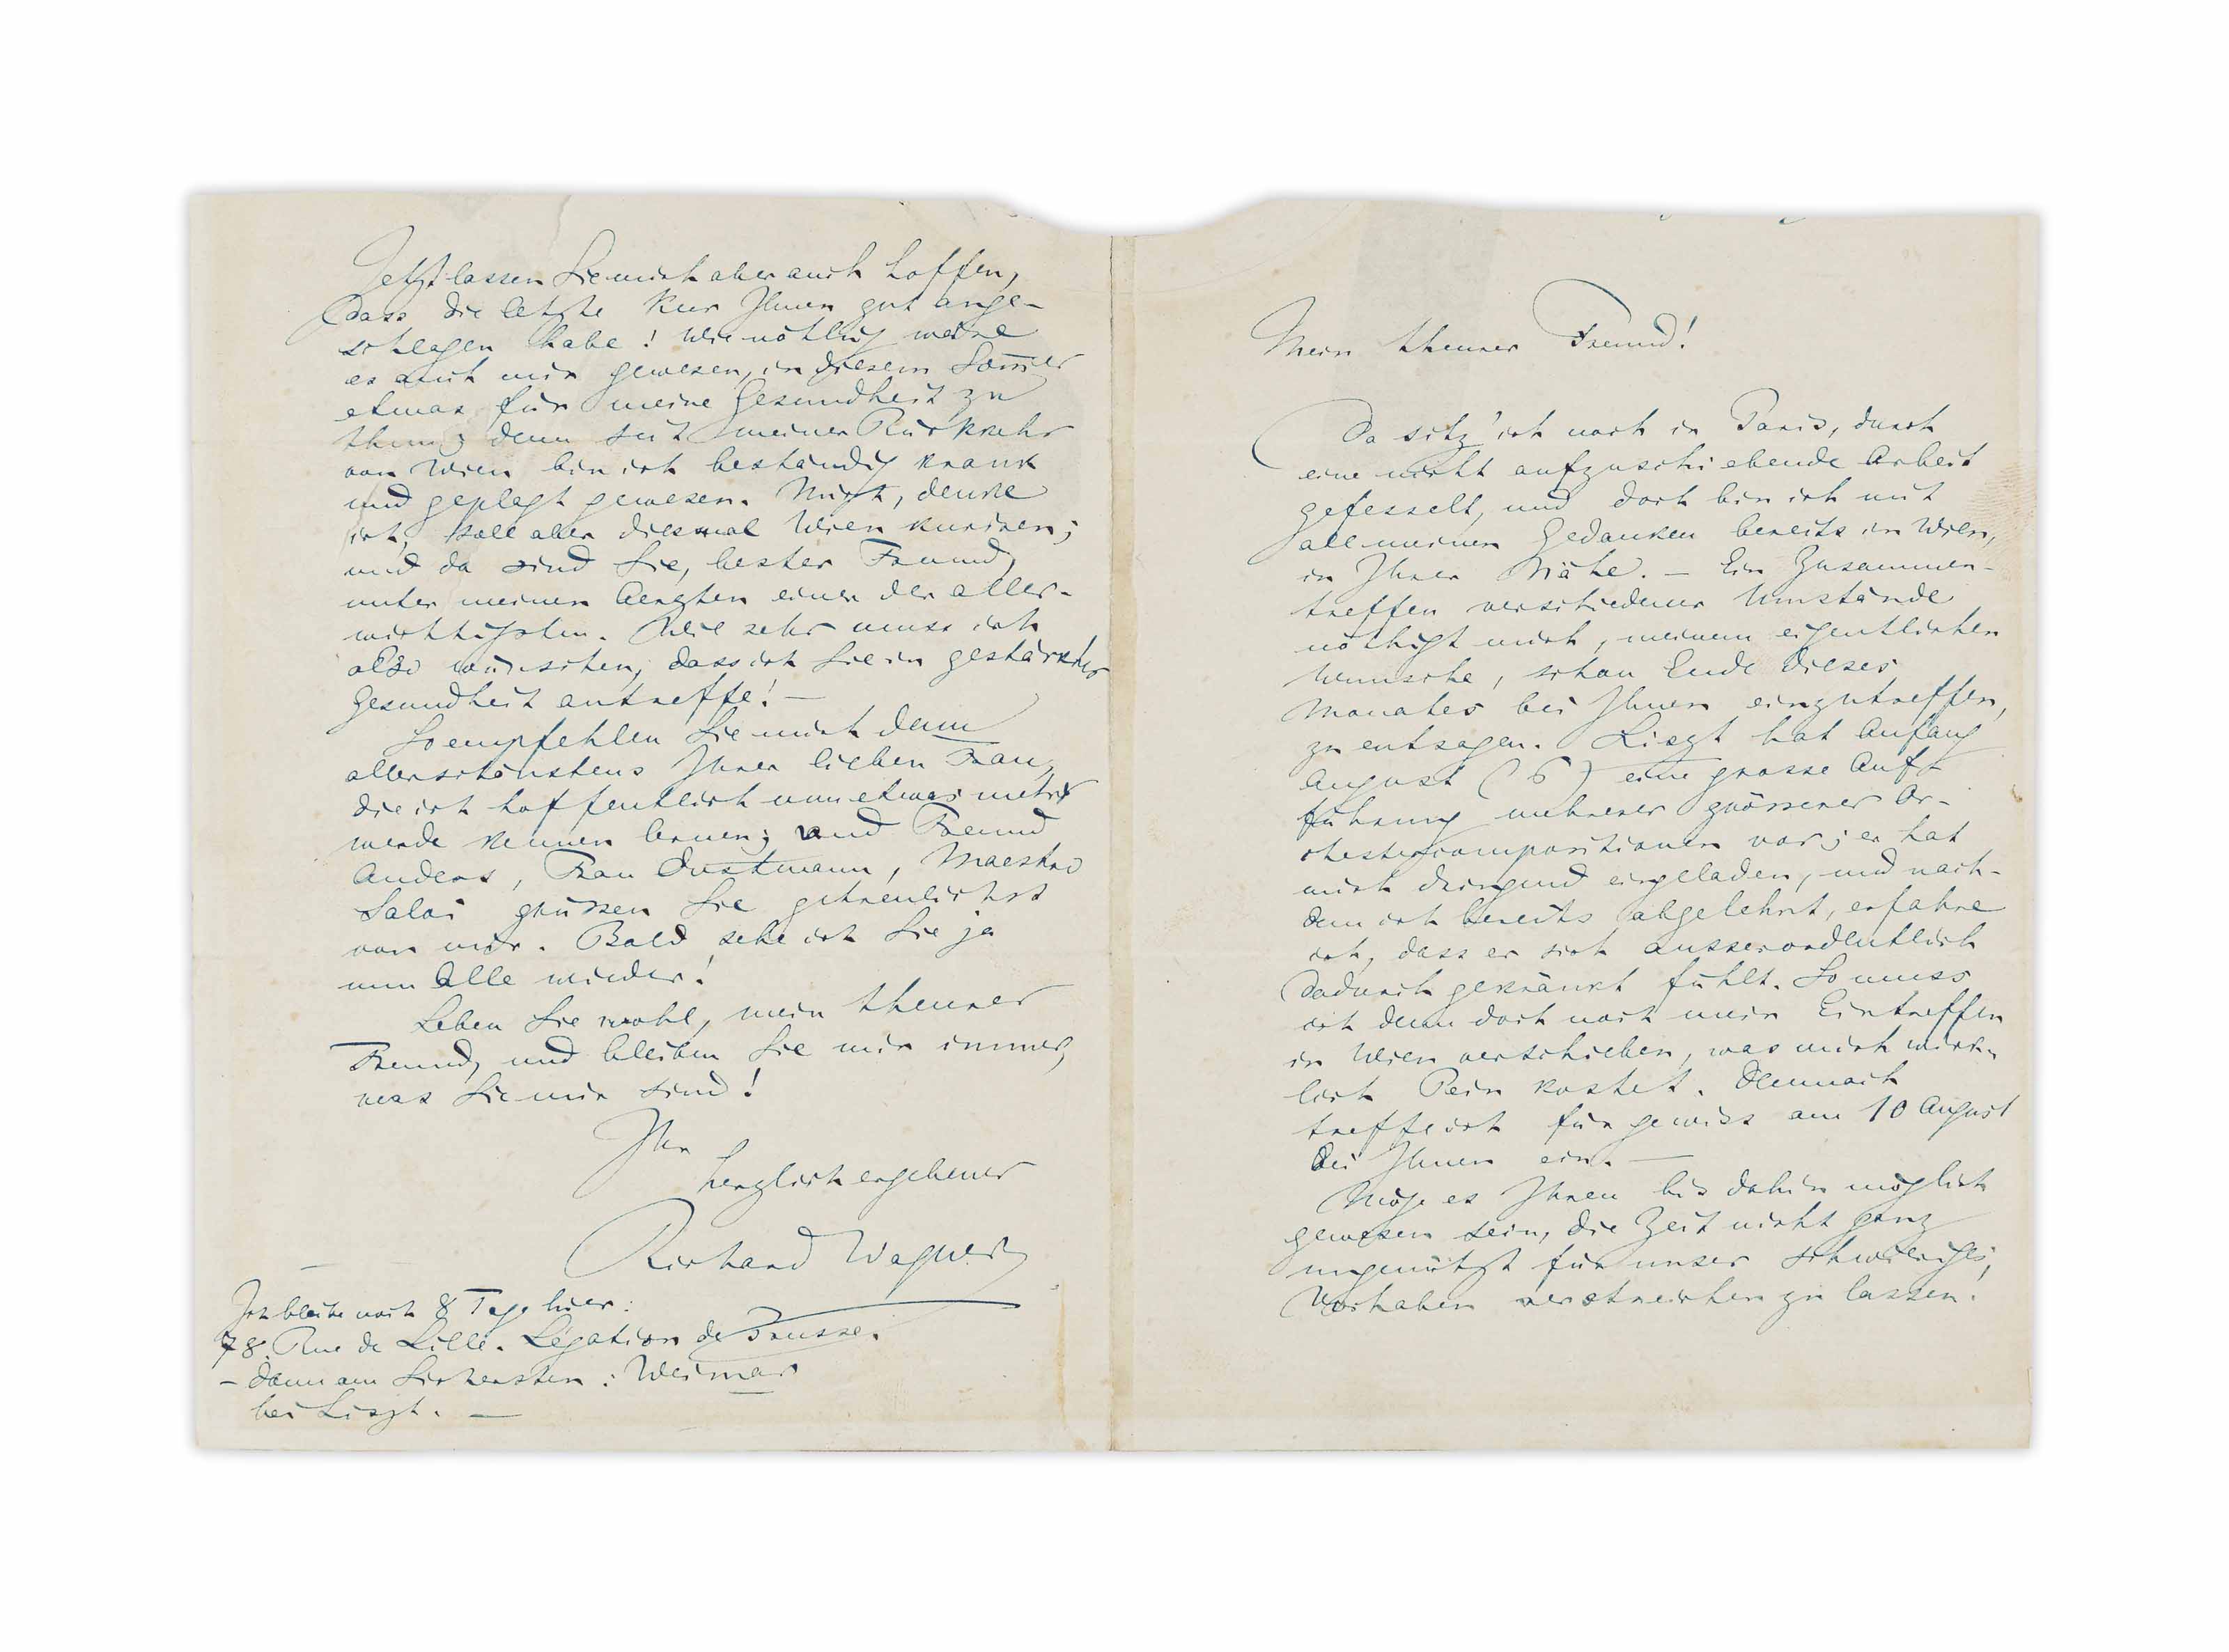 Mein theurer Freund!
Da sitz' ich noch in Paris, durch
eine nicht aufzuschiebende Arbeit
gefesselt, und doch bin ich mit
all meinen Gedanken bereits in Wien,
in Ihrer Nähe. — Ein Zusammen-
treffen verschiedener Umstände
nöthigt mich, meinem eigentlichen
Wunsche, schon Ende dieses
Monates bei Ihnen einzutreffen,
zu entsagen. Liszt hat Anfang
August (6) eine grosse Auf-
führung mehrerer grösserer Or-
chestercompositionen vor; er hat
mich dringend eingeladen, und nach-
dem ich bereits abgelehnt, erfahre
ich, dass er sich ausserordentlich
dadurch gekränkt fühlt. So muss
ich denn doch noch mein Eintreffen
in Wien verschieben, was mich wirk-
lich Pein kostet. Demnach
treffe ich für gewiss am 10 August
bei Ihnen ein. —
Möge es Ihnen bis dahin möglich
gewesen sein, die Zeit nicht ganz
ungenützt für unser schwieriges
Vorhaben verstreichen zu lassen.
Jetzt lassen Sie mich aber auch hoffen,
dass die letzte Kur Ihnen gut ange-
schlagen habe! Wie nöthig wäre
es auch mir gewesen, in diesem Som̅er
etwas für meine Gesundheit zu
thun; denn seit meiner Rückkehr
von Wien bin ich beständig krank
und geplagt gewesen. Mich, denke
ich, soll aber diesmal Wien kuriren;
und da sind Sie, bester Freund,
unter meinen Aerzten einer der aller-
wichtigsten. Wie sehr muss ich
also wünschen, dass ich Sie in gestärkter
Gesundheit antreffe! —
So empfehlen Sie mich denn
allerschönstens Ihrer lieben Frau,
die ich hoffentlich nun etwas mehr
werde kennen lernen; und Freund
Anders, Frau Dustmann, Maestro
Salvi grüssen Sie getreulichst
von mir. Bald sehe ich Sie ja
nun Alle wieder!
Leben Sie wohl, mein theurer
Freund, und bleiben Sie mir immer,
was Sie mir sind!
Ihr
herzlich ergebener
Richard Wagner
Ich bleibe noch 8 Tage hier:
78. Rue de Lille. Légation de Prusse.
— dann am sichersten: Weimar
bei Liszt. —